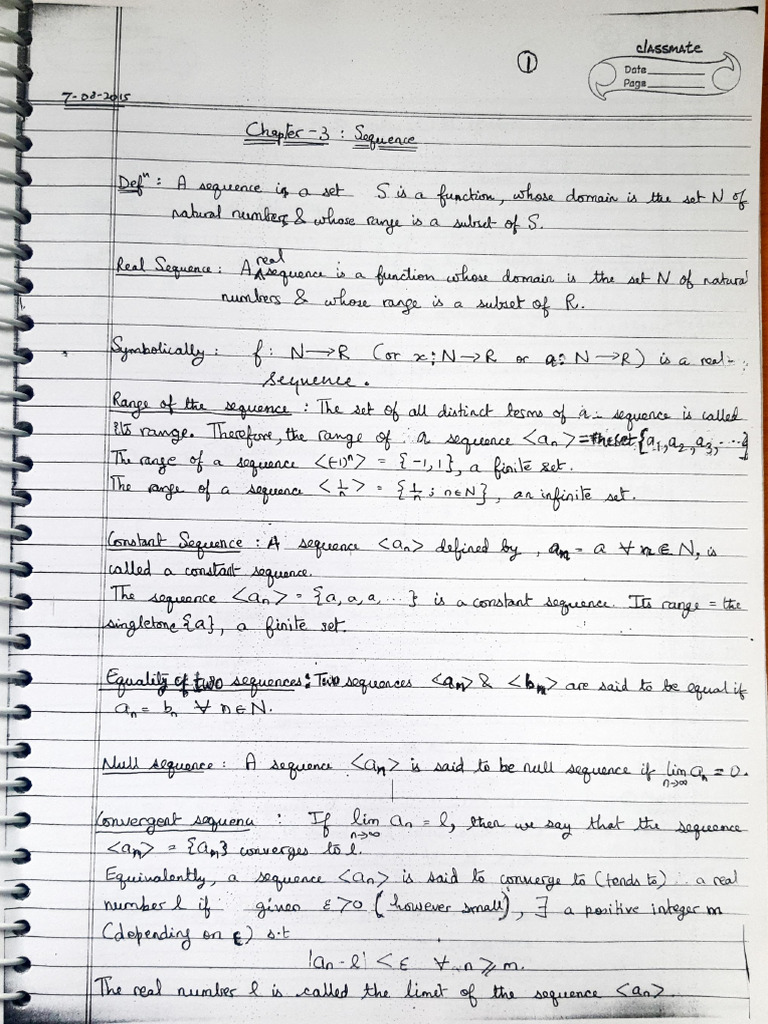 ①
classmate
Date
Page
7-08-2015
Chapter-3 : Sequence
Defⁿ : A sequence in a set S is a function, whose domain is the set N of
natural numbers & whose range is a subset of S.
Real Sequence : A real sequence is a function whose domain is the set N of natural
numbers & whose range is a subset of R.
Symbolically : f : N → R (or x : N → R or a : N → R) is a real
sequence.
Range of the sequence : The set of all distinct terms of a sequence is called
its range. Therefore, the range of a sequence <aₙ> = the set {a₁, a₂, a₃, ...}
The range of a sequence <(-1)ⁿ> = {-1, 1}, a finite set.
The range of a sequence <1/n> = {1/n ; n ∈ N}, an infinite set.
Constant Sequence : A sequence <aₙ> defined by, aₙ = a ∀ n ∈ N, is
called a constant sequence.
The sequence <aₙ> = {a, a, a, ...} is a constant sequence. Its range = the
singletone {a}, a finite set.
Equality of two sequences : Two sequences <aₙ> & <bₙ> are said to be equal if
aₙ = bₙ ∀ n ∈ N.
Null sequence : A sequence <aₙ> is said to be null sequence if lim n→∞ aₙ = 0.
Convergent sequence : If lim n→∞ aₙ = l, then we say that the sequence
<aₙ> = {aₙ} converges to l.
Equivalently, a sequence <aₙ> is said to converge to (tends to) a real
number l if given ε > 0 (however small), ∃ a positive integer m
(depending on ε) s.t
|aₙ - l| < ε ∀ n ⩾ m.
The real number l is called the limit of the sequence <aₙ>.